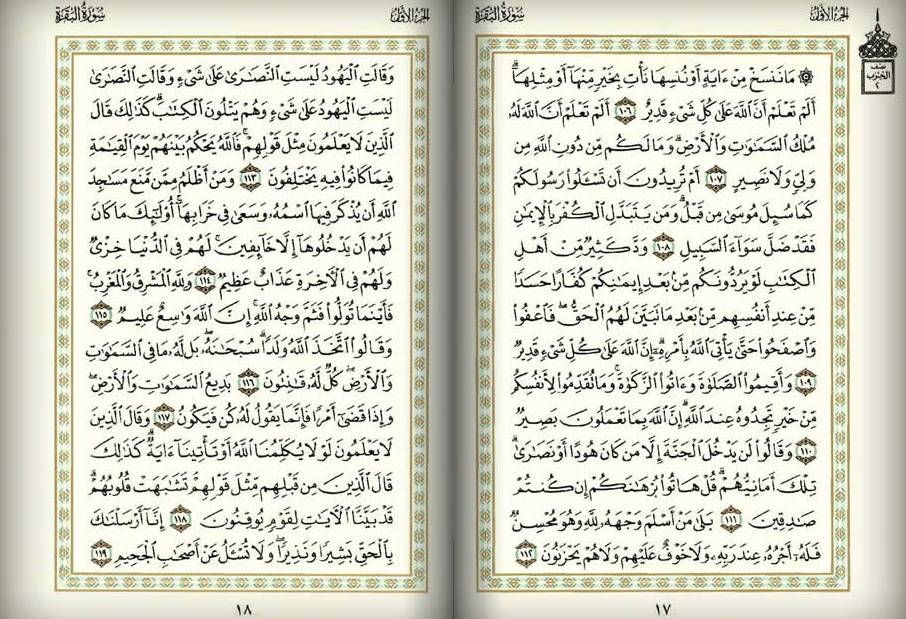 الجزء الأول
سورة البقرة
نصف
الحزب
٢
۞ مَا نَنسَخْ مِنْ ءَايَةٍ أَوْ نُنسِهَا نَأْتِ بِخَيْرٍ مِّنْهَآ أَوْ مِثْلِهَآ ۗ
أَلَمْ تَعْلَمْ أَنَّ ٱللَّهَ عَلَىٰ كُلِّ شَىْءٍ قَدِيرٌ ١٠٦ أَلَمْ تَعْلَمْ أَنَّ ٱللَّهَ لَهُۥ
مُلْكُ ٱلسَّمَٰوَٰتِ وَٱلْأَرْضِ ۗ وَمَا لَكُم مِّن دُونِ ٱللَّهِ مِن
وَلِىٍّ وَلَا نَصِيرٍ ١٠٧ أَمْ تُرِيدُونَ أَن تَسْـَٔلُوا۟ رَسُولَكُمْ
كَمَا سُئِلَ مُوسَىٰ مِن قَبْلُ ۗ وَمَن يَتَبَدَّلِ ٱلْكُفْرَ بِٱلْإِيمَٰنِ
فَقَدْ ضَلَّ سَوَآءَ ٱلسَّبِيلِ ١٠٨ وَدَّ كَثِيرٌ مِّنْ أَهْلِ
ٱلْكِتَٰبِ لَوْ يَرُدُّونَكُم مِّنۢ بَعْدِ إِيمَٰنِكُمْ كُفَّارًا حَسَدًا
مِّنْ عِندِ أَنفُسِهِم مِّنۢ بَعْدِ مَا تَبَيَّنَ لَهُمُ ٱلْحَقُّ ۖ فَٱعْفُوا۟
وَٱصْفَحُوا۟ حَتَّىٰ يَأْتِىَ ٱللَّهُ بِأَمْرِهِۦٓ ۗ إِنَّ ٱللَّهَ عَلَىٰ كُلِّ شَىْءٍ قَدِيرٌ
١٠٩ وَأَقِيمُوا۟ ٱلصَّلَوٰةَ وَءَاتُوا۟ ٱلزَّكَوٰةَ ۚ وَمَا تُقَدِّمُوا۟ لِأَنفُسِكُم
مِّنْ خَيْرٍ تَجِدُوهُ عِندَ ٱللَّهِ ۗ إِنَّ ٱللَّهَ بِمَا تَعْمَلُونَ بَصِيرٌ
١١٠ وَقَالُوا۟ لَن يَدْخُلَ ٱلْجَنَّةَ إِلَّا مَن كَانَ هُودًا أَوْ نَصَٰرَىٰ ۗ
تِلْكَ أَمَانِيُّهُمْ ۗ قُلْ هَاتُوا۟ بُرْهَٰنَكُمْ إِن كُنتُمْ
صَٰدِقِينَ ١١١ بَلَىٰ مَنْ أَسْلَمَ وَجْهَهُۥ لِلَّهِ وَهُوَ مُحْسِنٌ
فَلَهُۥٓ أَجْرُهُۥ عِندَ رَبِّهِۦ وَلَا خَوْفٌ عَلَيْهِمْ وَلَا هُمْ يَحْزَنُونَ ١١٢
١٧
الجزء الأول
سورة البقرة
وَقَالَتِ ٱلْيَهُودُ لَيْسَتِ ٱلنَّصَٰرَىٰ عَلَىٰ شَىْءٍ وَقَالَتِ ٱلنَّصَٰرَىٰ
لَيْسَتِ ٱلْيَهُودُ عَلَىٰ شَىْءٍ وَهُمْ يَتْلُونَ ٱلْكِتَٰبَ ۗ كَذَٰلِكَ قَالَ
ٱلَّذِينَ لَا يَعْلَمُونَ مِثْلَ قَوْلِهِمْ ۚ فَٱللَّهُ يَحْكُمُ بَيْنَهُمْ يَوْمَ ٱلْقِيَٰمَةِ
فِيمَا كَانُوا۟ فِيهِ يَخْتَلِفُونَ ١١٣ وَمَنْ أَظْلَمُ مِمَّن مَّنَعَ مَسَٰجِدَ
ٱللَّهِ أَن يُذْكَرَ فِيهَا ٱسْمُهُۥ وَسَعَىٰ فِى خَرَابِهَآ ۚ أُو۟لَٰٓئِكَ مَا كَانَ
لَهُمْ أَن يَدْخُلُوهَآ إِلَّا خَآئِفِينَ ۚ لَهُمْ فِى ٱلدُّنْيَا خِزْىٌ
وَلَهُمْ فِى ٱلْءَاخِرَةِ عَذَابٌ عَظِيمٌ ١١٤ وَلِلَّهِ ٱلْمَشْرِقُ وَٱلْمَغْرِبُ ۚ
فَأَيْنَمَا تُوَلُّوا۟ فَثَمَّ وَجْهُ ٱللَّهِ ۚ إِنَّ ٱللَّهَ وَٰسِعٌ عَلِيمٌ ١١٥
وَقَالُوا۟ ٱتَّخَذَ ٱللَّهُ وَلَدًا ۗ سُبْحَٰنَهُۥ ۖ بَل لَّهُۥ مَا فِى ٱلسَّمَٰوَٰتِ
وَٱلْأَرْضِ ۖ كُلٌّ لَّهُۥ قَٰنِتُونَ ١١٦ بَدِيعُ ٱلسَّمَٰوَٰتِ وَٱلْأَرْضِ ۖ
وَإِذَا قَضَىٰٓ أَمْرًا فَإِنَّمَا يَقُولُ لَهُۥ كُن فَيَكُونُ ١١٧ وَقَالَ ٱلَّذِينَ
لَا يَعْلَمُونَ لَوْلَا يُكَلِّمُنَا ٱللَّهُ أَوْ تَأْتِينَآ ءَايَةٌ ۗ كَذَٰلِكَ
قَالَ ٱلَّذِينَ مِن قَبْلِهِم مِّثْلَ قَوْلِهِمْ ۘ تَشَٰبَهَتْ قُلُوبُهُمْ ۗ
قَدْ بَيَّنَّا ٱلْءَايَٰتِ لِقَوْمٍ يُوقِنُونَ ١١٨ إِنَّآ أَرْسَلْنَٰكَ
بِٱلْحَقِّ بَشِيرًا وَنَذِيرًا ۖ وَلَا تُسْـَٔلُ عَنْ أَصْحَٰبِ ٱلْجَحِيمِ ١١٩
١٨